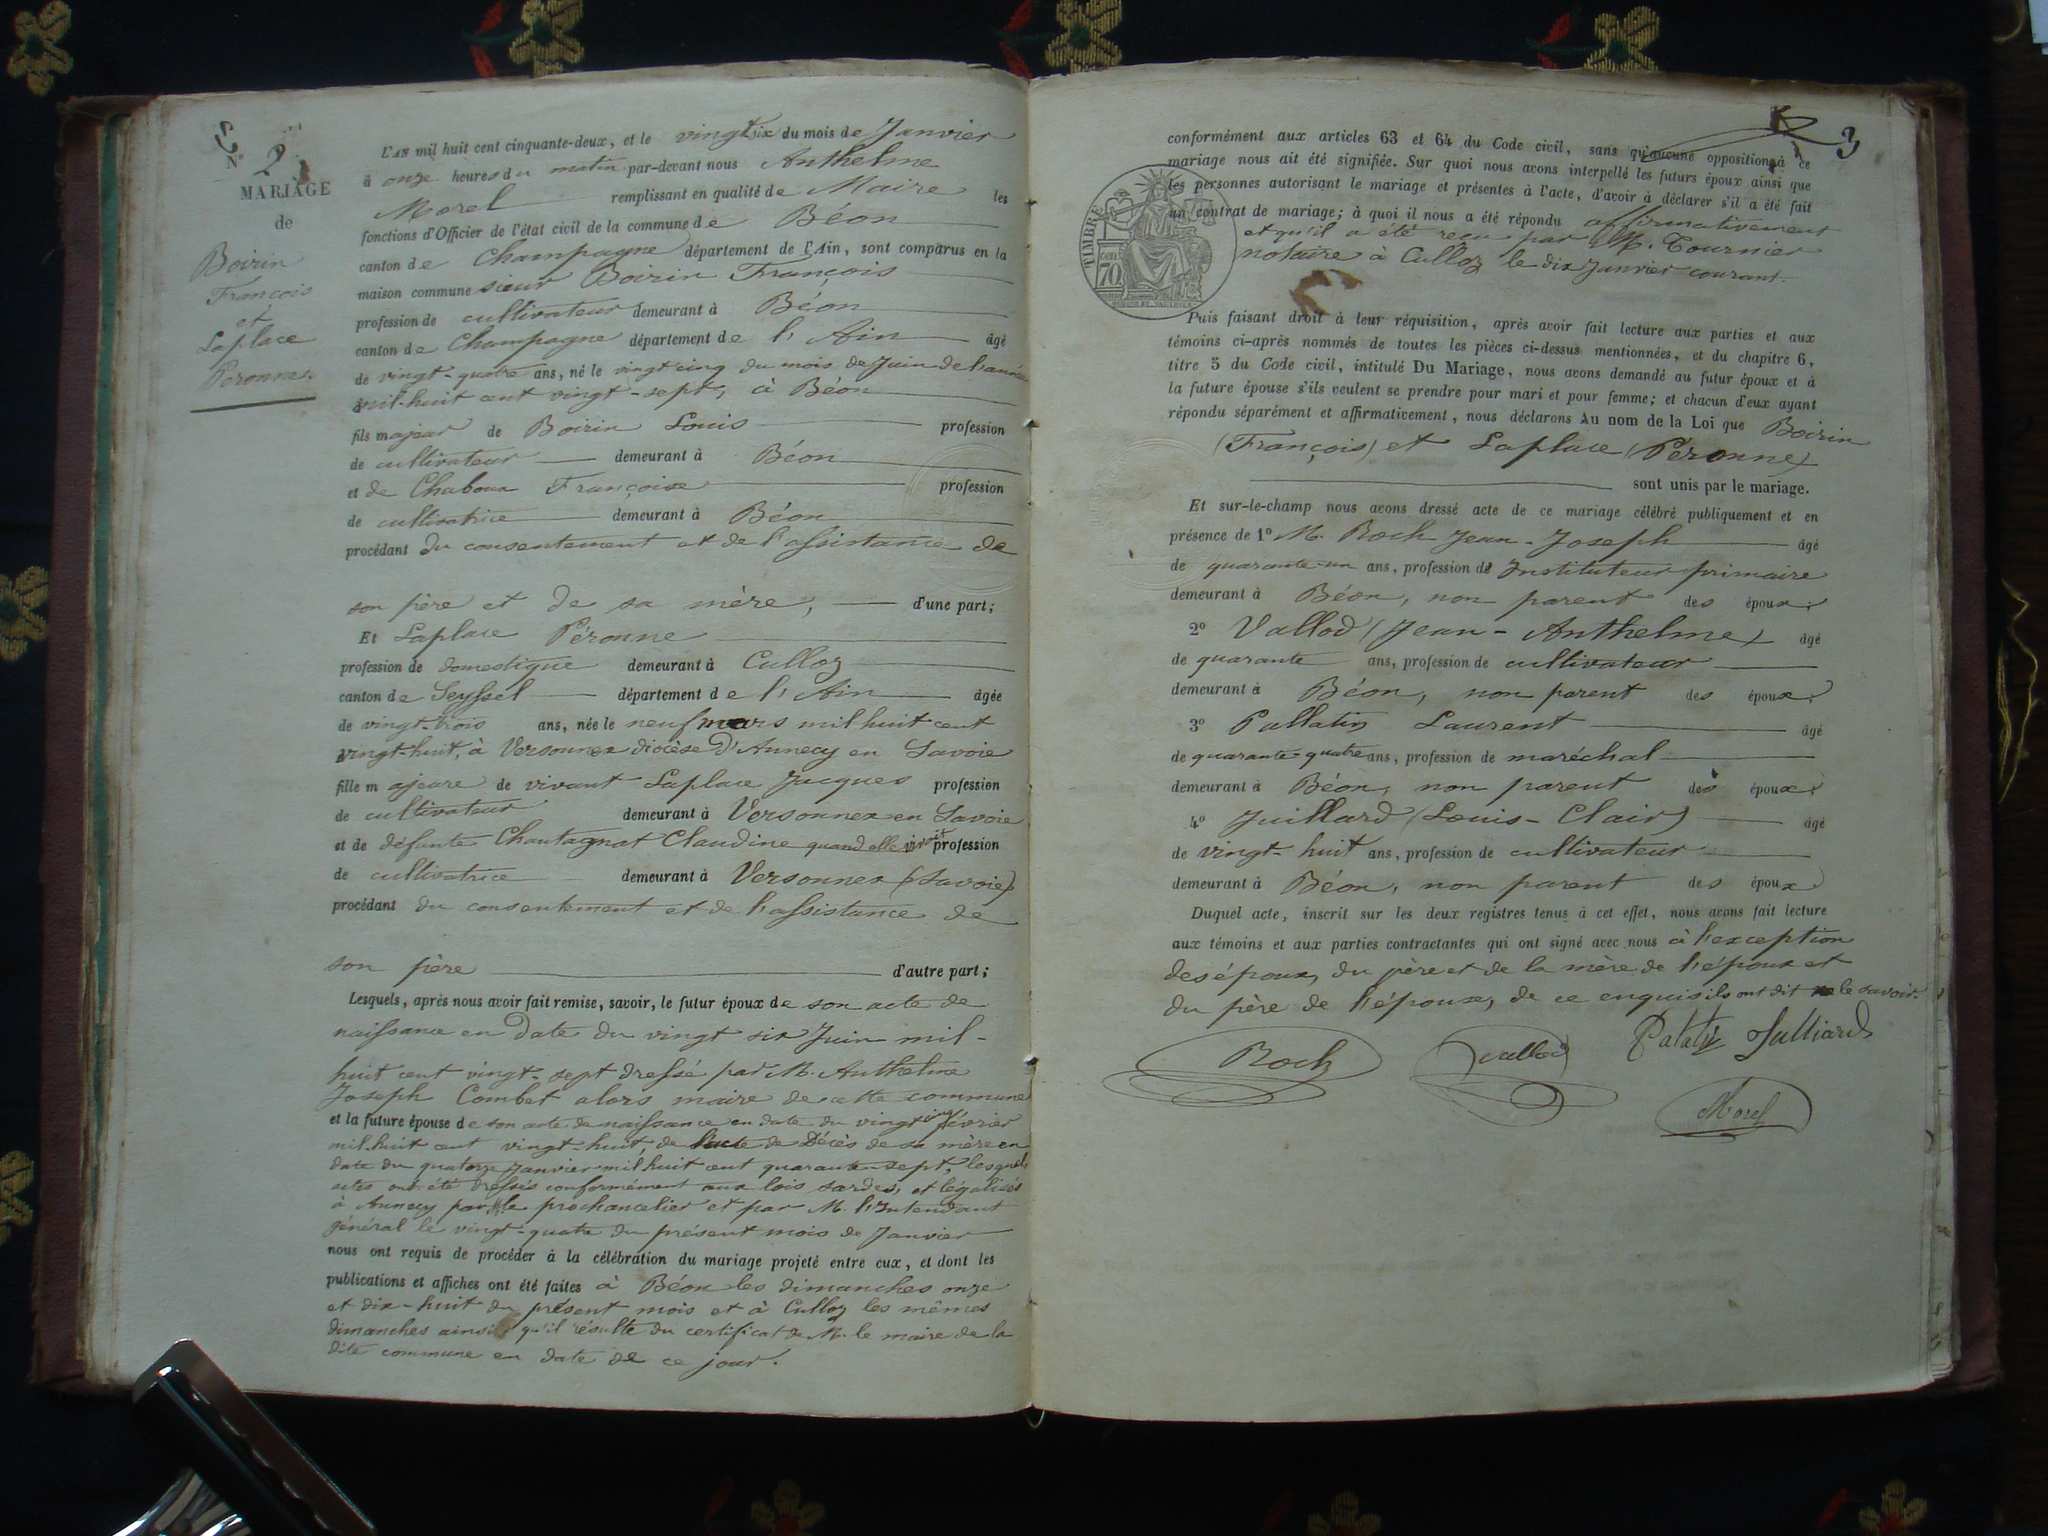 N° 2
MARIAGE
de
Boirin
François
et
Laplace
Péronne.
L'AN mil huit cent cinquante-deux, et le vingt six du mois de Janvier
à onze heures du matin par-devant nous Anthelme
Morel remplissant en qualité de Maire les
fonctions d'Officier de l'état civil de la commune de Béon
canton de Champagne département de l'Ain, sont comparus en la
maison commune sieur Boirin François
profession de cultivateur demeurant à Béon
canton de Champagne département de l'Ain âgé
de vingt-quatre ans, né le vingt cinq du mois de Juin de l'année
mil-huit cent vingt-sept, à Béon
fils majeur de Boirin Louis profession
de cultivateur demeurant à Béon
et de Chaboux Françoise profession
de cultivatrice demeurant à Béon
procédant du consentement et de l'assistance de
son père et de sa mère, d'une part;
Et Laplace Péronne
profession de domestique demeurant à Culloz
canton de Seyssel département de l'Ain âgée
de vingt-trois ans, née le neuf mars mil huit cent
vingt-huit, à Versonnex diocèse d'Annecy en Savoie
fille majeure de vivant Laplace Jacques profession
de cultivateur demeurant à Versonnex en Savoie
et de défunte Chautagnat Claudine quand elle vivait profession
de cultivatrice demeurant à Versonnex (Savoie)
procédant du consentement et de l'assistance de
son père d'autre part;
Lesquels, après nous avoir fait remise, savoir, le futur époux de son acte de
naissance en date du vingt six Juin mil-
huit cent vingt-sept dressé par M. Anthelme
Joseph Combet alors maire de cette commune
et la future épouse de son acte de naissance en date du vingt cinq février
mil-huit cent vingt-huit, de l'acte de Décès de sa mère en
date du quatorze Janvier mil huit cent quarante sept, lesquels
actes ont été dressés conformément aux lois sardes, et légalisés
à Annecy par le prochancelier et par M. l'Intendant
général le vingt-quatre du présent mois de Janvier
nous ont requis de procéder à la célébration du mariage projeté entre eux, et dont les
publications et affiches ont été faites à Béon les dimanches onze
et dix-huit du présent mois et à Culloz les mêmes
dimanches ainsi qu'il résulte du certificat de M. le maire de la
dite commune en date de ce jour.
3
conformément aux articles 63 et 64 du Code civil, sans qu'aucune opposition à ce
mariage nous ait été signifiée. Sur quoi nous avons interpellé les futurs époux ainsi que
les personnes autorisant le mariage et présentes à l'acte, d'avoir à déclarer s'il a été fait
un contrat de mariage; à quoi il nous a été répondu affirmativement
et qu'il a été reçu par M. Tournier
notaire à Culloz le dix Janvier courant.
TIMBRE
70
Puis faisant droit à leur réquisition, après avoir fait lecture aux parties et aux
témoins ci-après nommés de toutes les pièces ci-dessus mentionnées, et du chapitre 6,
titre 5 du Code civil, intitulé Du Mariage, nous avons demandé au futur époux et à
la future épouse s'ils veulent se prendre pour mari et pour femme; et chacun d'eux ayant
répondu séparément et affirmativement, nous déclarons Au nom de la Loi que Boirin
(François) et Laplace (Péronne)
sont unis par le mariage.
Et sur-le-champ nous avons dressé acte de ce mariage célébré publiquement et en
présence de 1° M. Roch Jean-Joseph âgé
de quarante-un ans, profession de Instituteur primaire
demeurant à Béon, non parent des époux;
2° Vallod (Jean-Anthelme) âgé
de quarante ans, profession de cultivateur
demeurant à Béon, non parent des époux;
3° Pallatin Laurent âgé
de quarante quatre ans, profession de maréchal
demeurant à Béon, non parent des époux;
4° Juillard (Louis-Clair) âgé
de vingt-huit ans, profession de cultivateur
demeurant à Béon, non parent des époux
Duquel acte, inscrit sur les deux registres tenus à cet effet, nous avons fait lecture
aux témoins et aux parties contractantes qui ont signé avec nous à l'exception
des époux, du père et de la mère de l'époux et
du père de l'épouse, de ce enquis ils ont dit ne le savoir.
Roch Vallod Palatin Julliard
Morel